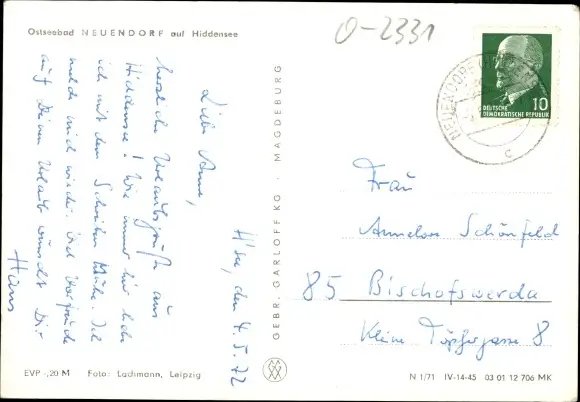 Ostseebad NEUENDORF auf Hiddensee
0-2331
NEUENDORF
10
DEUTSCHE
DEMOKRATISCHE REPUBLIK
c
H'see, den 4.5.72
Liebe Anne,
herzliche Urlaubsgrüße aus
Hiddensee! Wie immer bin ich
ich mit dem Schreiben Mühe. Ich
melde mich wieder. Viel Vorfreude
auf Deinen Urlaub wünscht Dir
Hans
GEBR. GARLOFF KG · MAGDEBURG
Frau
Annelore Schönfeld
85 Bischofswerda
Kleine Töpfergasse 8
EVP -,20 M Foto: Lachmann, Leipzig
N 1/71 IV-14-45 03 01 12 706 MK